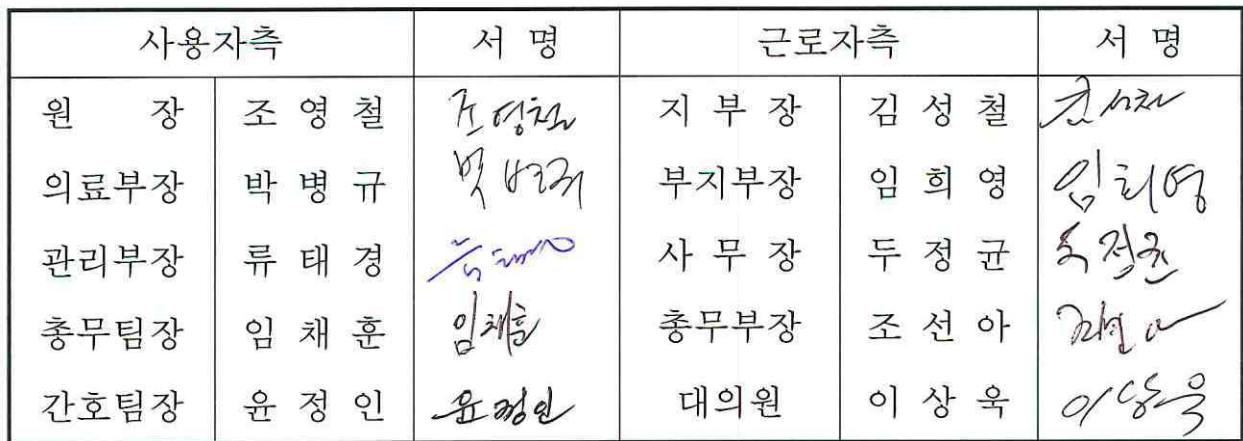 사용자측 서 명 근로자측 서 명
원 장 조 영 철 조영철 지 부 장 김 성 철 김성철
의료부장 박 병 규 부지부장 임 희 영 임희영
관리부장 류 태 경 사 무 장 두 정 균
총무팀장 임 채 훈 임채훈 총무부장 조 선 아
간호팀장 윤 정 인 윤정인 대의원 이 상 욱 이상욱